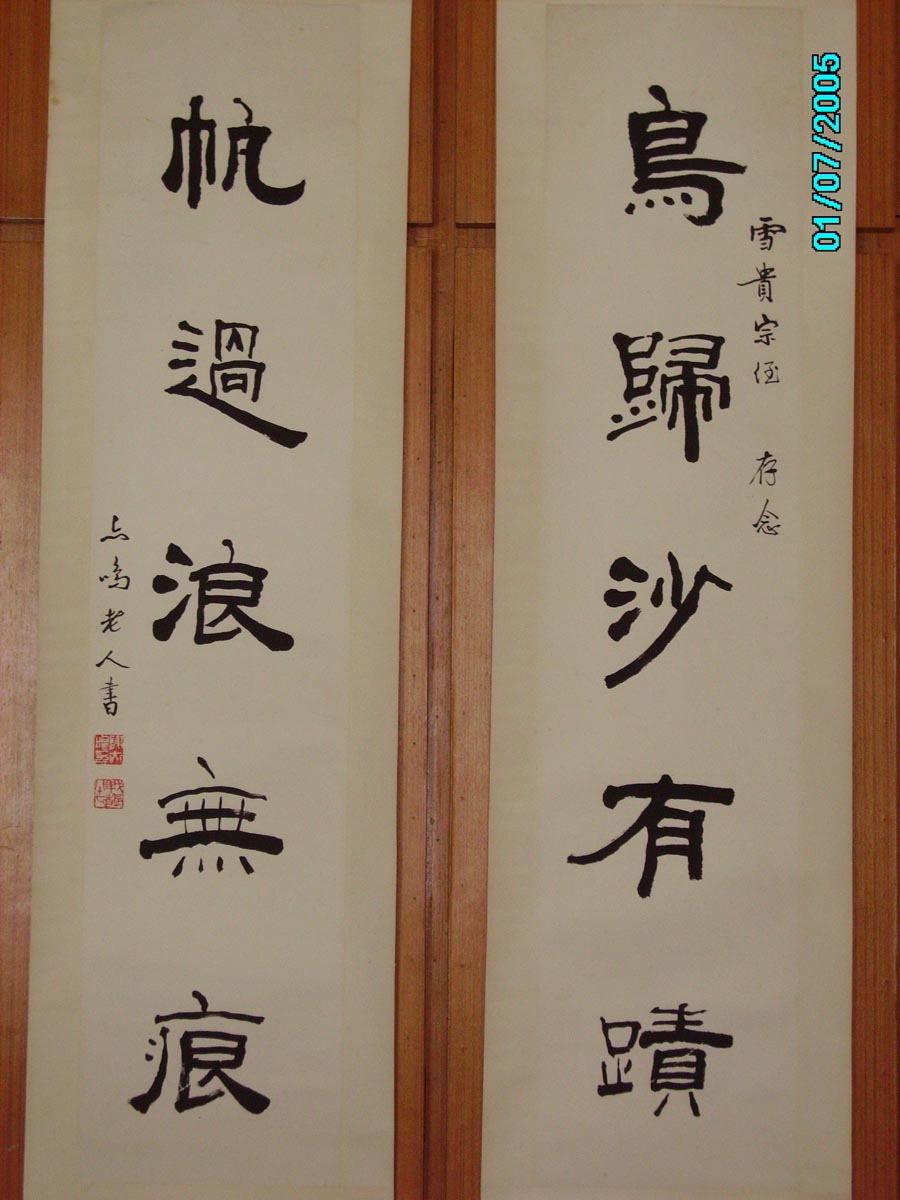 鳥歸沙有蹟
雪貴宗侄 存念
帆過浪無痕
点鳴老人書
01/07/2005